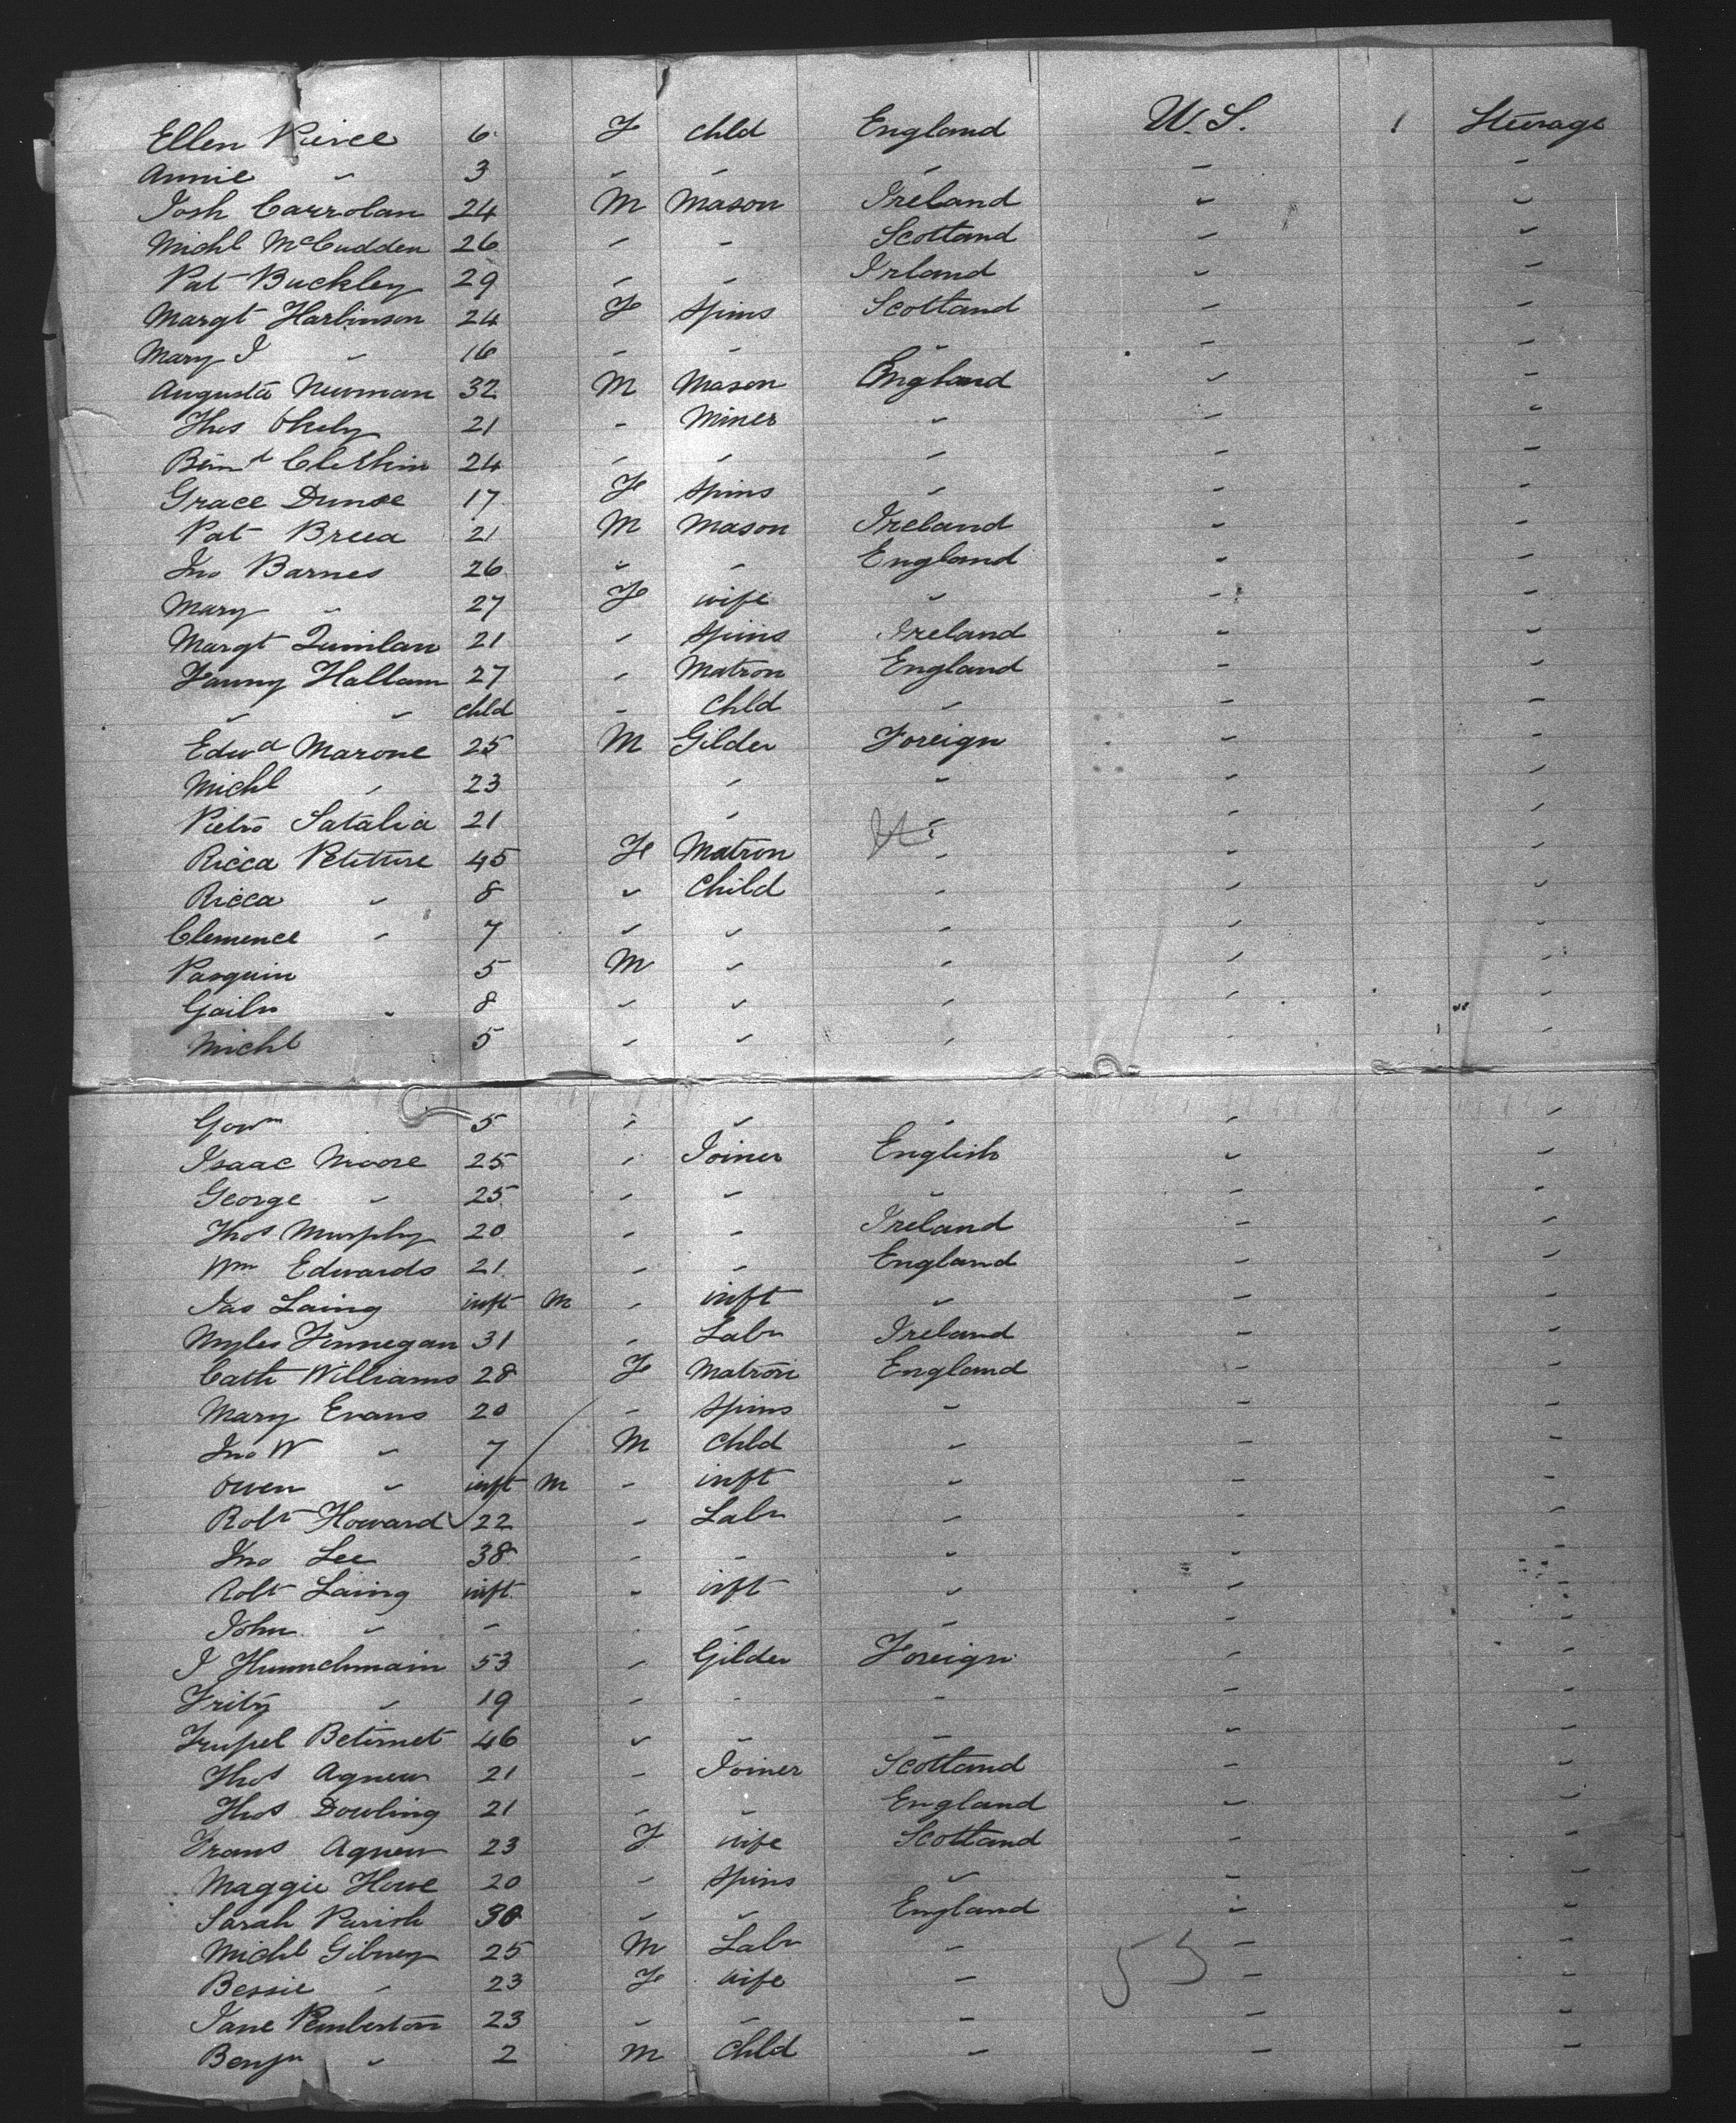 Ellen Pierce 6 F chld England U.S. Steerage
Annie " 3 " " " " "
Josh Carrolan 24 M Mason Ireland " "
Michl McCudden 26 " " Scotland " "
Pat Buckley 29 " " Irland " "
Margt Harbinson 24 F Spins Scotland " "
Mary J " 16 " " " " "
Augusta Newman 32 M Mason England " "
Thos Okely 21 " Miner " " "
24 " " " " "
Grace Dunse 17 F Spins " " "
Pat 21 M Mason Ireland " "
Jno Barnes 26 " " England " "
Mary " 27 F wife " " "
Margt Quinlan 21 " Spins Ireland " "
Fanny Hallam 27 " Matron England " "
" " chld " Chld " " "
Edwd Marone 25 M Gilder Foreign " "
Michl " 23 " " " "
Pietro Satalia 21 " " " "
Ricca 45 F Matron " " "
Ricca " 8 " Child " " "
Clemence " 7 " " " " "
Pasquin 5 M " " " "
8 " " " " "
Michl 5 " " " " "
5 " " " " "
Isaac Moore 25 " Joiner English " "
George " 25 " " " " "
Thos Murphy 20 " " Ireland " "
Wm Edwards 21 " " England " "
Jas Laing inft M " inft " " "
Myles Finnegan 31 " Labr Ireland " "
Cath Williams 28 F Matron England " "
Mary Evans 20 " Spins " " "
Jno W " 7 M Chld " " "
Owen " inft M " inft " " "
Robt Howard 22 " Labr " " "
Jno Lee 38 " " " " "
Robt Laing inft " inft " " "
John " " " " " " "
J Hunnchmain 53 " Gilder Foreign " "
Fritz " 19 " " " " "
46 " " " " "
Thos Agnew 21 " Joiner Scotland " "
Thos Dowling 21 " " England " "
Frans Agnew 23 F wife Scotland " "
Maggie Howe 20 " Spins " " "
Sarah Parish 30 " " England " "
Michl Gibney 25 M Labr " " "
Bessie " 23 F wife " 53 " "
Jane Pemberton 23 " " " " "
Benjn " 2 M Chld " " "